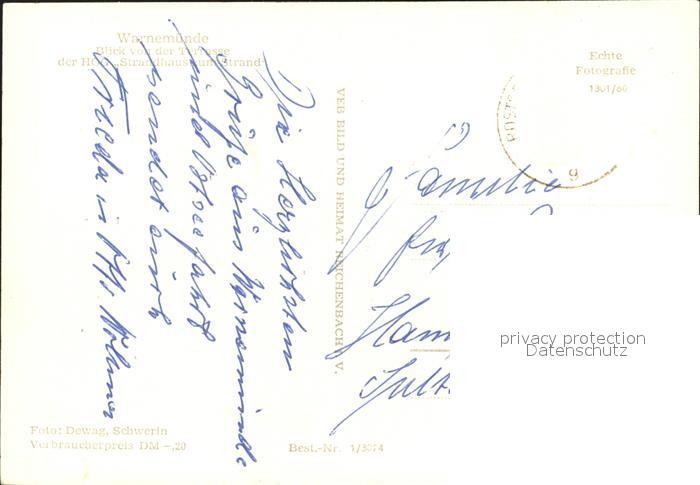 Warnemünde
Blick von der Terrasse
der HOG „Strandhaus am Strand"
Echte
Fotografie
1301/60
Die Herzlichsten
Grüße aus Warnemünde
einer Ostseefahrt
sendet euch
Frieda u.
VEB BILD UND HEIMAT REICHENBACH I. V.
Familie
Ham
privacy protection
Datenschutz
Foto: Dewag, Schwerin
Verbraucherpreis DM -,20
Best.-Nr. 1/3074